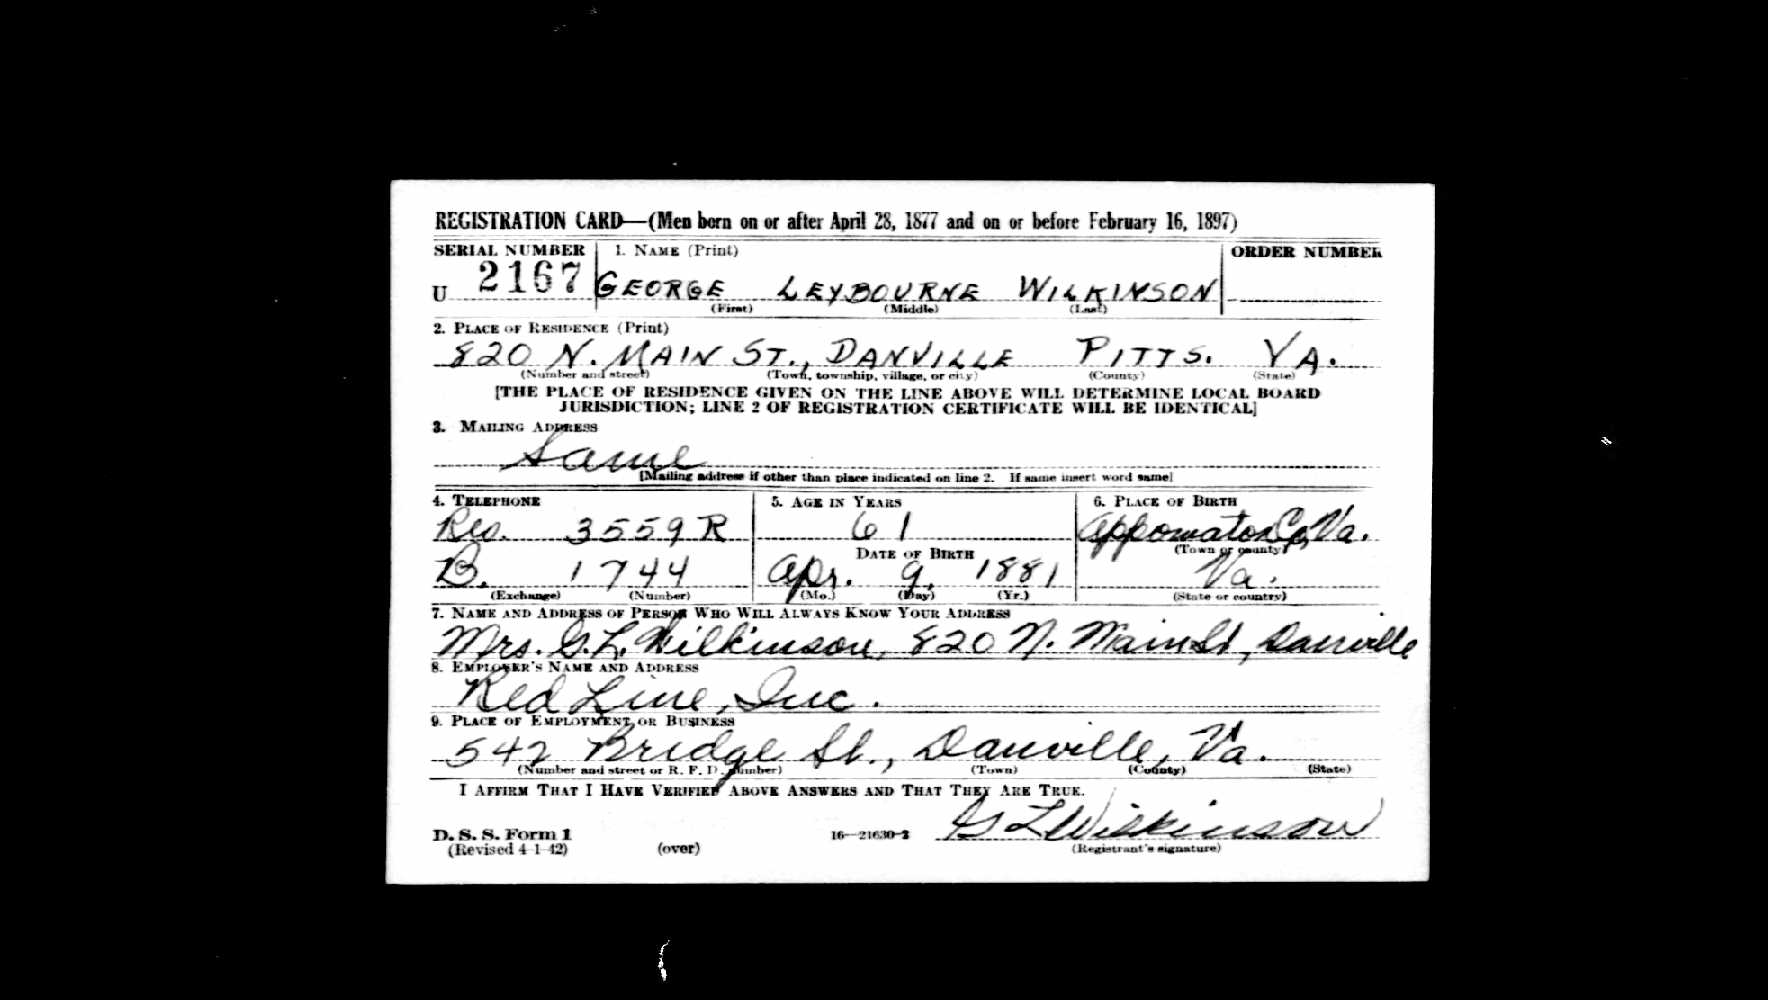 REGISTRATION CARD—(Men born on or after April 28, 1877 and on or before February 16, 1897)
SERIAL NUMBER 1. NAME (Print) ORDER NUMBER
U 2167 GEORGE LEYBOURNE WILKINSON
(First) (Middle) (Last)
2. PLACE OF RESIDENCE (Print)
820 N. MAIN ST., DANVILLE PITTS. VA.
(Number and street) (Town, township, village, or city) (County) (State)
[THE PLACE OF RESIDENCE GIVEN ON THE LINE ABOVE WILL DETERMINE LOCAL BOARD
JURISDICTION; LINE 2 OF REGISTRATION CERTIFICATE WILL BE IDENTICAL]
3. MAILING ADDRESS
Same
[Mailing address if other than place indicated on line 2. If same insert word same]
4. TELEPHONE 5. AGE IN YEARS 6. PLACE OF BIRTH
Res. 3559R 61 Appomatox Co, Va.
DATE OF BIRTH (Town or county)
B. 1744 Apr. 9, 1881 Va.
(Exchange) (Number) (Mo.) (Day) (Yr.) (State or country)
7. NAME AND ADDRESS OF PERSON WHO WILL ALWAYS KNOW YOUR ADDRESS
Mrs. G. L. Wilkinson, 820 N. Main St, Danville
8. EMPLOYER'S NAME AND ADDRESS
Red Line, Inc.
9. PLACE OF EMPLOYMENT OR BUSINESS
542 Bridge St., Danville, Va.
(Number and street or R. F. D. number) (Town) (County) (State)
I AFFIRM THAT I HAVE VERIFIED ABOVE ANSWERS AND THAT THEY ARE TRUE.
D. S. S. Form 1 16—21630-2 G L Wilkinson
(Revised 4-1-42) (over) (Registrant's signature)